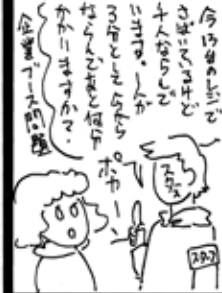 今13台のレジで
さばいているけど
千人ならんで
います。一人
3分として今から
ならんであと何分
かかりますか?
企業ブース問題
ポカーン
スタッフ
スタッフ